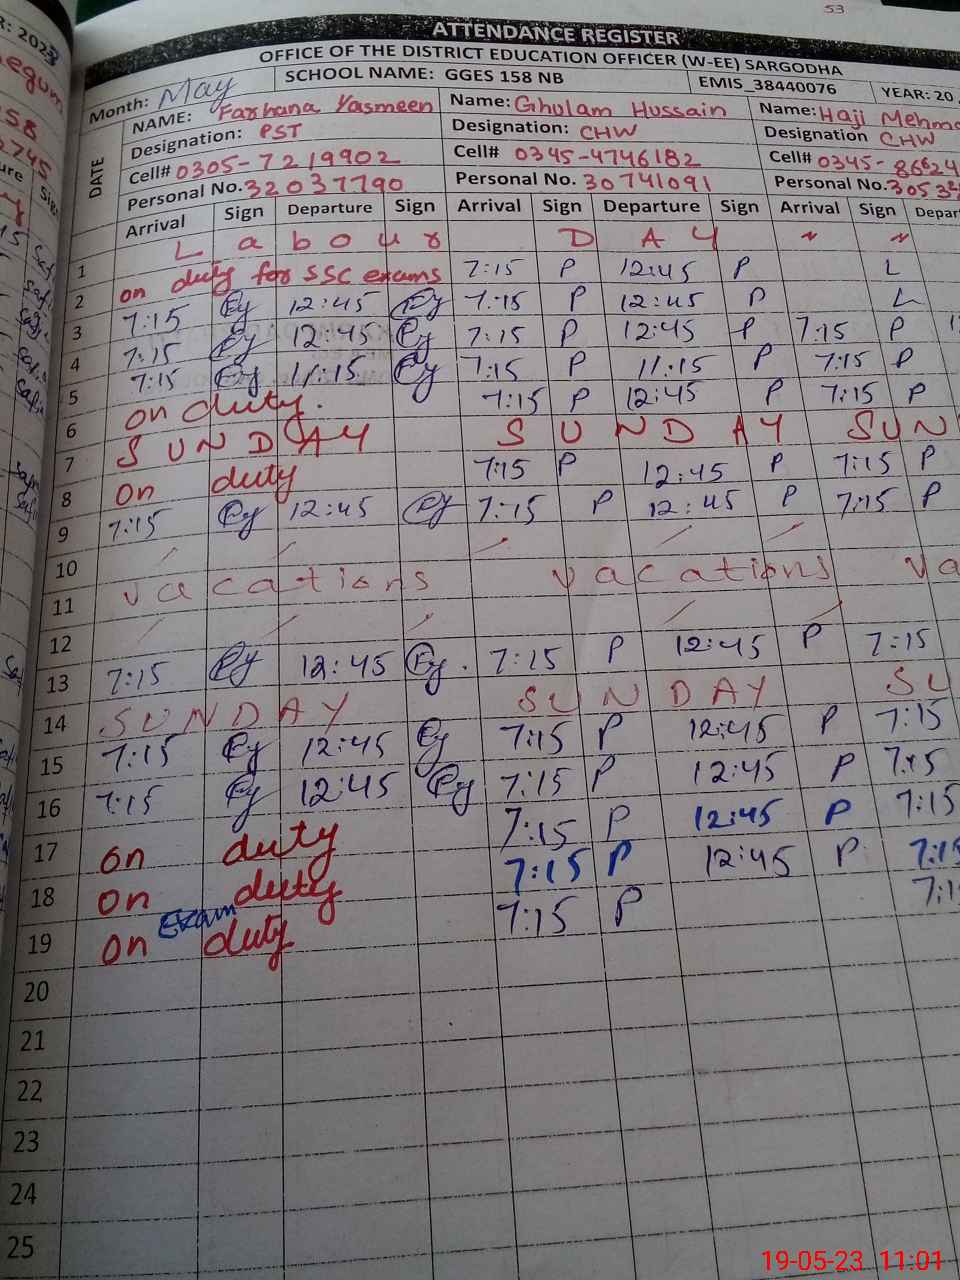 53
ATTENDANCE REGISTER
OFFICE OF THE DISTRICT EDUCATION OFFICER (W-EE) SARGODHA
SCHOOL NAME: GGES 158 NB EMIS_38440076 YEAR: 20
Month: May
DATE
NAME: Farhana Yasmeen Name: Ghulam Hussain Name: Haji Mehm
Designation: PST Designation: CHW Designation CHW
Cell# 0305-7219902 Cell# 0345-4746182 Cell# 0345-8662
Personal No. 32037790 Personal No. 30741091 Personal No. 3053
Arrival Sign Departure Sign Arrival Sign Departure Sign Arrival Sign Depar
1 Labour DAY 〃 〃
2 on duty for SSC exams 7:15 P 12:45 P L
3 7:15 Ey 12:45 Ey 7:15 P 12:45 P L
4 7:15 Ey 12:45 Ey 7:15 P 12:45 P 7:15 P
5 7:15 Ey 11:15 Ey 7:15 P 11:15 P 7:15 P
6 on duty. 7:15 P 12:45 P 7:15 P
7 SUNDAY SUNDAY SUN
8 on duty 7:15 P 12:45 P 7:15 P
9 7:15 Ey 12:45 Ey 7:15 P 12:45 P 7:15 P
10
11 vacations vacations va
12
13 7:15 Ey 12:45 Ey. 7:15 P 12:45 P 7:15
14 SUNDAY SUNDAY SU
15 7:15 Ey 12:45 Ey 7:15 P 12:45 P 7:15
16 7:15 Ey 12:45 Ey 7:15 P 12:45 P 7:15
17 on duty 7:15 P 12:45 P 7:15
18 on duty 7:15 P 12:45 P 7:15
19 on Exam duty 7:15 P 7:1
20
21
22
23
24
25
19-05-23 11:01